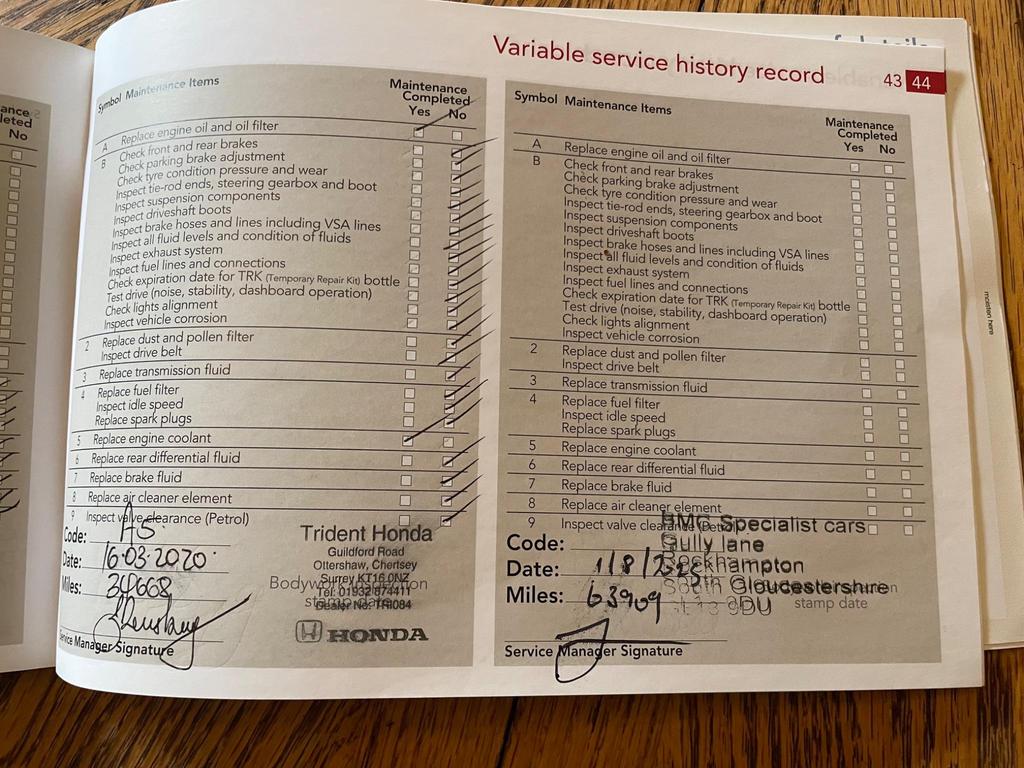 Variable service history record 43 44
Symbol Maintenance Items
Maintenance
Completed
Yes No
A Replace engine oil and oil filter
B Check front and rear brakes
Check parking brake adjustment
Check tyre condition pressure and wear
Inspect tie-rod ends, steering gearbox and boot
Inspect suspension components
Inspect driveshaft boots
Inspect brake hoses and lines including VSA lines
Inspect all fluid levels and condition of fluids
Inspect exhaust system
Inspect fuel lines and connections
Check expiration date for TRK (Temporary Repair Kit) bottle
Test drive (noise, stability, dashboard operation)
Check lights alignment
Inspect vehicle corrosion
2 Replace dust and pollen filter
Inspect drive belt
3 Replace transmission fluid
4 Replace fuel filter
Inspect idle speed
Replace spark plugs
5 Replace engine coolant
6 Replace rear differential fluid
7 Replace brake fluid
8 Replace air cleaner element
9 Inspect valve clearance (Petrol)
Code: A5
Date: 16.03.2020
Miles:
Service Manager Signature
Trident Honda
Guildford Road
Ottershaw, Chertsey
Surrey KT16 0NZ
Tel: 01932 874411
Dealer No: TRI084
Bodywork inspection
stamp date
HONDA
Symbol Maintenance Items
Maintenance
Completed
Yes No
A Replace engine oil and oil filter
B Check front and rear brakes
Check parking brake adjustment
Check tyre condition pressure and wear
Inspect tie-rod ends, steering gearbox and boot
Inspect suspension components
Inspect driveshaft boots
Inspect brake hoses and lines including VSA lines
Inspect all fluid levels and condition of fluids
Inspect exhaust system
Inspect fuel lines and connections
Check expiration date for TRK (Temporary Repair Kit) bottle
Test drive (noise, stability, dashboard operation)
Check lights alignment
Inspect vehicle corrosion
2 Replace dust and pollen filter
Inspect drive belt
3 Replace transmission fluid
4 Replace fuel filter
Inspect idle speed
Replace spark plugs
5 Replace engine coolant
6 Replace rear differential fluid
7 Replace brake fluid
8 Replace air cleaner element
9 Inspect valve clearance (Petrol)
Code:
Date: 1/8/
Miles: 63909
Service Manager Signature
BMG Specialist cars
Gully lane
Rockhampton
South Gloucestershire
9DU
stamp date
moisten here
No